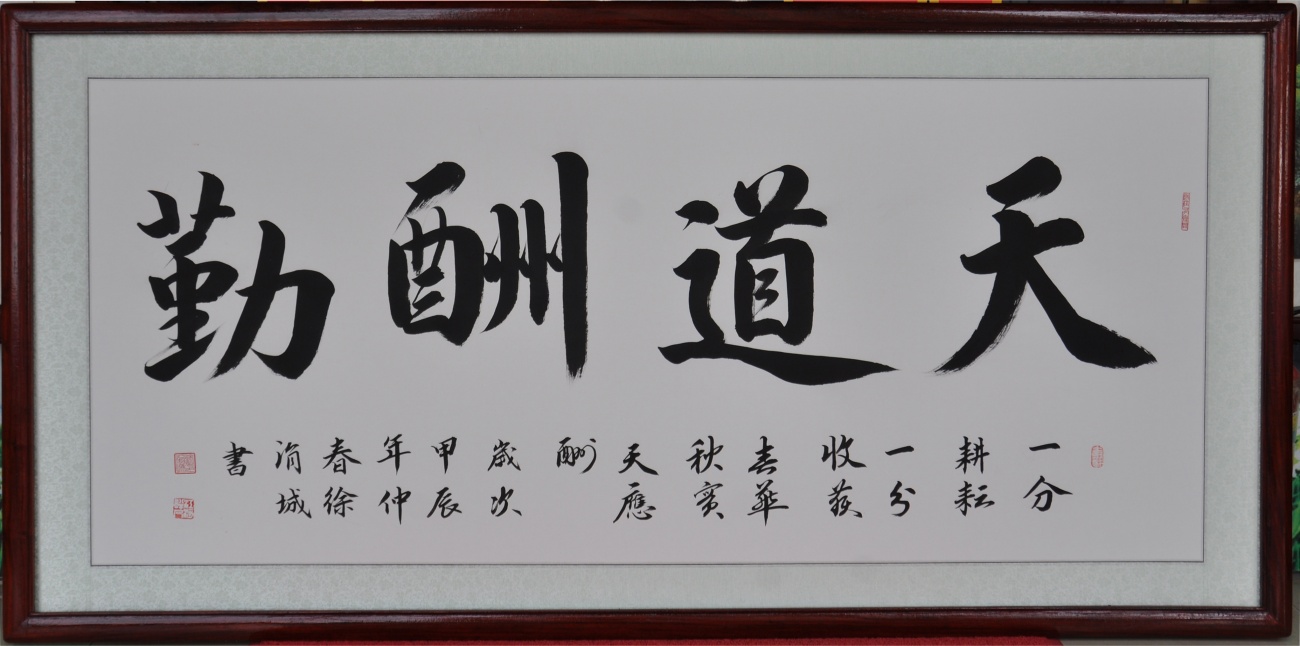 天道酬勤
一分
耕耘
一分
收获
春華
秋實
天應
酬
歲次
甲辰
年仲
春徐
涓城
書